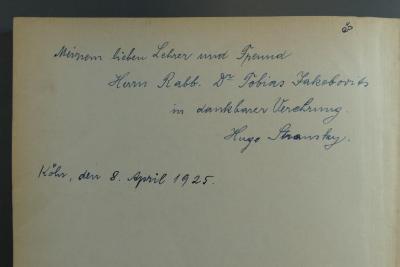 Meinem lieben Lehrer und Freund
Herrn Rabb. Dr Tobias Jakobovits
in dankbarer Verehrung.
Hugo Stransky.
Köln, den 8. April 1925.